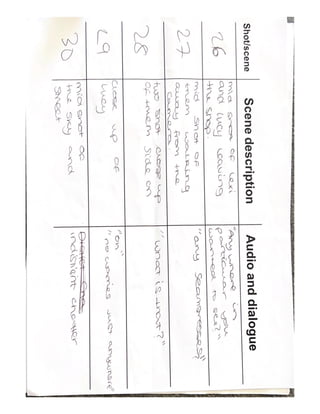 Shot/scene
Scene description
Audio and dialogue
26
mid shot of lexi
and lucy leaving
the shop
"Anywhere in
particular you
wanted to see?"
27
mid shot of
them walking
away from the
camera
"any seamstresses?"
28
two shot close up
of them side on
"What is that?"
29
close up of
lucy
"oh"
"no worries just anywhere"
30
mid shot of
the sky and
street
indistinct chatter